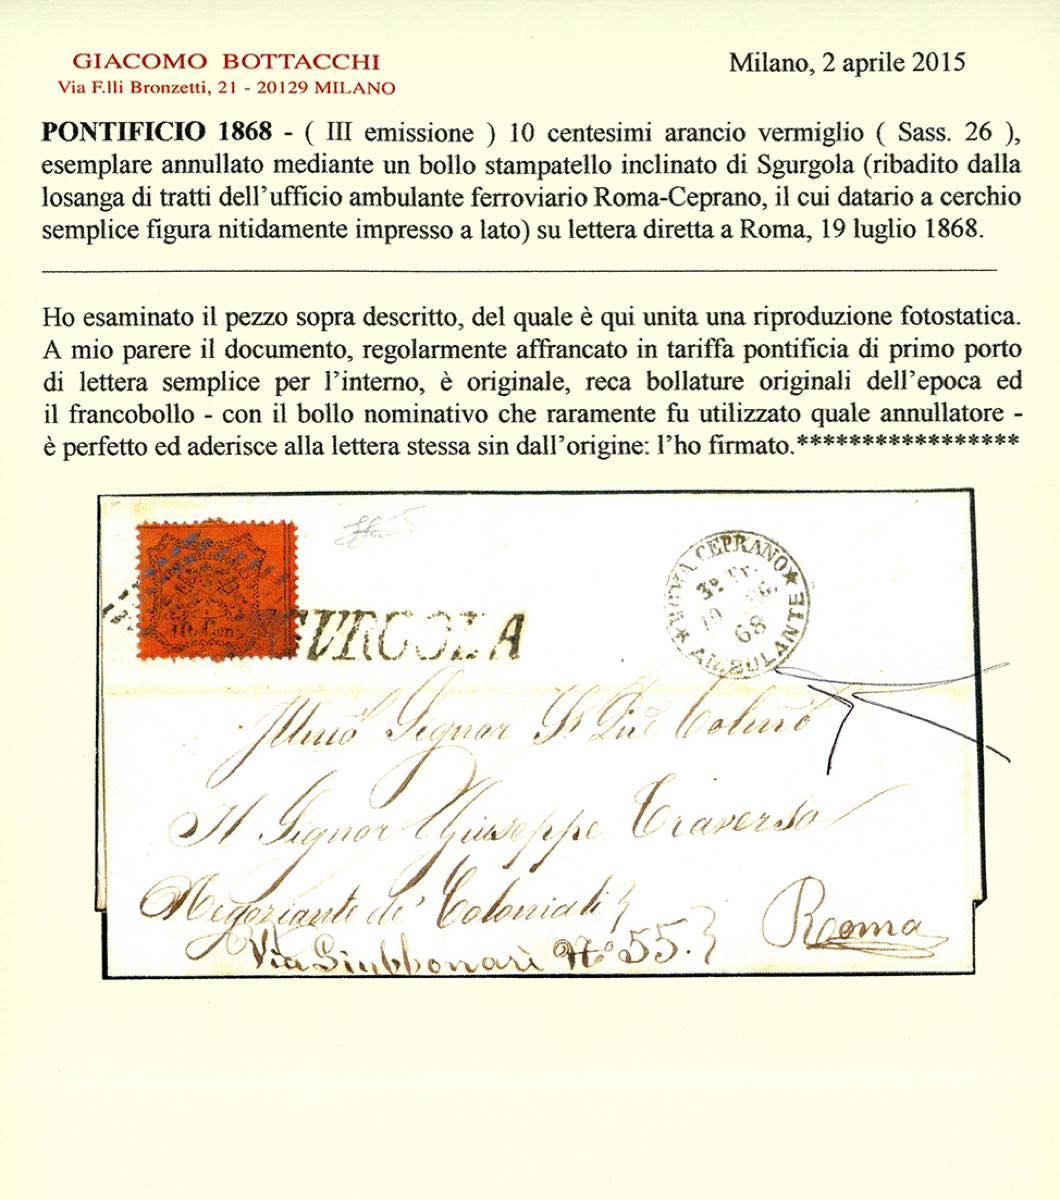 GIACOMO BOTTACCHI
Via F.lli Bronzetti, 21 - 20129 MILANO
Milano, 2 aprile 2015
PONTIFICIO 1868 - ( III emissione ) 10 centesimi arancio vermiglio ( Sass. 26 ),
esemplare annullato mediante un bollo stampatello inclinato di Sgurgola (ribadito dalla
losanga di tratti dell'ufficio ambulante ferroviario Roma-Ceprano, il cui datario a cerchio
semplice figura nitidamente impresso a lato) su lettera diretta a Roma, 19 luglio 1868.
Ho esaminato il pezzo sopra descritto, del quale è qui unita una riproduzione fotostatica.
A mio parere il documento, regolarmente affrancato in tariffa pontificia di primo porto
di lettera semplice per l'interno, è originale, reca bollature originali dell'epoca ed
il francobollo - con il bollo nominativo che raramente fu utilizzato quale annullatore -
è perfetto ed aderisce alla lettera stessa sin dall'origine: l'ho firmato.*****************
10 Cent
GVRGOLA
ROMA CEPRANO
19
68
AMBULANTE
Signor
Il Signor Giuseppe Traverso
Negoziante de' Coloniali
Via Giubbonari No 55.
Roma